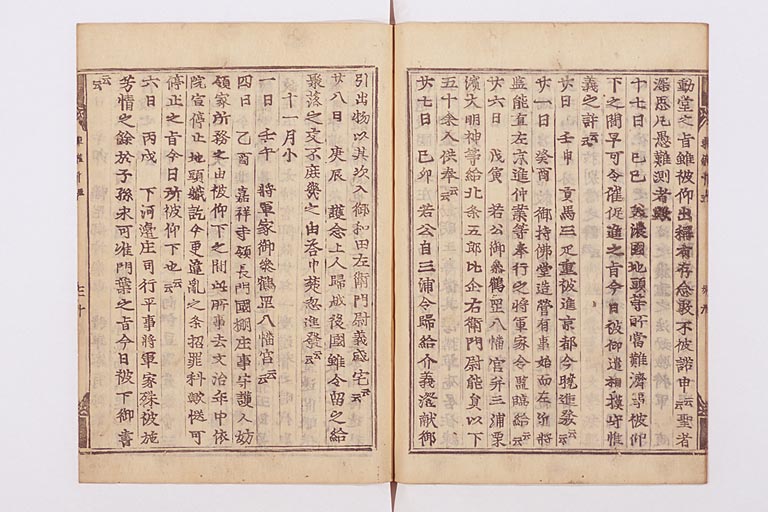 動堂之旨雖被仰出稱有存念敢不被諾申云云聖者
深思凡愚難測者歟
十七日 己巳 美濃國地頭等所當難濟事被仰
下之間早可令催促進之旨今日被仰遣相模守惟
義之許云云
廿日 壬申 貢馬三疋重被進京都今曉進發云云
廿一日 癸酉 御持佛堂造營有事始而左近將
監能直左京進仲業等奉行之將軍家令監臨給云云
廿六日 戊寅 若公御參鶴罡八幡宮并三浦栗
濱大明神等給北条五郎比企右衛門尉能員以下
五十余人供奉云云
廿七日 己卯 若公自三浦令歸給介義澄獻御
引出物以其次入御和田左衛門尉義盛宅云云
廿八日 庚辰 護念上人歸越後國雖令留之給
聚落之交不庶幾之由答申忽進發云云
十一月小
一日 壬午 將軍家御參鶴罡八幡宮云云
四日 乙酉 嘉祥寺領長門國棚庄事守護人妨
領家所務之由被仰下之間所事去文治年中依
院宣停止地頭職訖今更違乱之条招罪科歟慥可
停止之旨今日所被仰下也云云
六日 丙戌 下河邊庄司行平事將軍家殊被施
芳情之餘於子孫永可准門葉之旨今日被下御書
云云